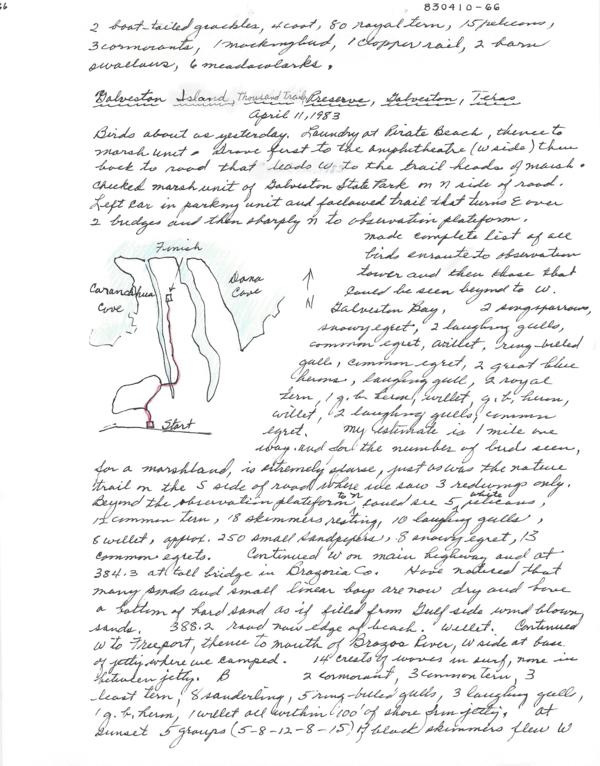 66
830410-66
2 boat-tailed grackles, 4 coot, 80 royal tern, 15 pelicans,
3 cormorants, 1 mockingbird, 1 clapper rail, 2 barn
swallows, 6 meadowlarks.
Galveston Island, Thousand Trails Preserve, Galveston, Texas
April 11, 1983
Birds about as yesterday. Laundry at Pirate Beach, thence to
marsh unit. Drove first to the amphitheatre (W side) then
back to road that leads W to the trail heads of marsh.
Checked marsh unit of Galveston State Park on N side of road.
Left car in parking unit and followed trail that turns E over
2 bridges and then sharply N to observation plateform.
made complete list of all
birds enroute to observation
tower and then those that
could be seen beyond to W.
Galveston Bay. 2 song sparrows,
snowy egret, 2 laughing gulls,
common egret, willet, ring-billed
gull, common egret, 2 great blue
herons, laughing gull, 2 royal
tern, 1 g.b. heron, willet, g.b. heron,
willet, 2 laughing gulls, common
egret. My estimate is 1 mile one
way and for the number of birds seen,
Finish
Carancahua
Cove
Dana
Cove
N
Start
for a marshland, is extremely sparse, just as was the nature
trail on the S side of road where we saw 3 redwings only.
Beyond the observation plateform to N could see 5 white pelicans,
12 common tern, 18 skimmers resting, 10 laughing gulls,
8 willet, approx. 250 small sandpipers, 8 snowy egret, 13
common egrets. Continued W on main highway and at
384.3 at toll bridge in Brazoria Co. Have noticed that
many ponds and small linear bays are now dry and have
a bottom of hard sand as if filled from Gulf side wind blown
sands. 388.2 road now edge of beach. Willet. Continued
W to Freeport, thence to mouth of Brazos River, W side at base
of jetty where we camped. 14 crests of waves in surf, none in
between jetty. B 2 cormorant, 3 common tern, 3
least tern, 8 sanderling, 5 ring-billed gulls, 3 laughing gulls,
1 g.b. heron, 1 willet all within 100' of shore from jetty. At
sunset 5 groups (5-8-12-8-15) of black skimmers flew W